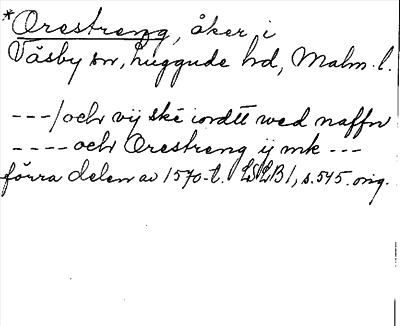 *Orestreng, åker i
Väsby sn, Luggude hd, Malm. l.
---/och vij ské iordtt wed naffn
---- och Orestreng ij mk ---
förra delen av 1570-t. LSLB 1, s. 545. orig.